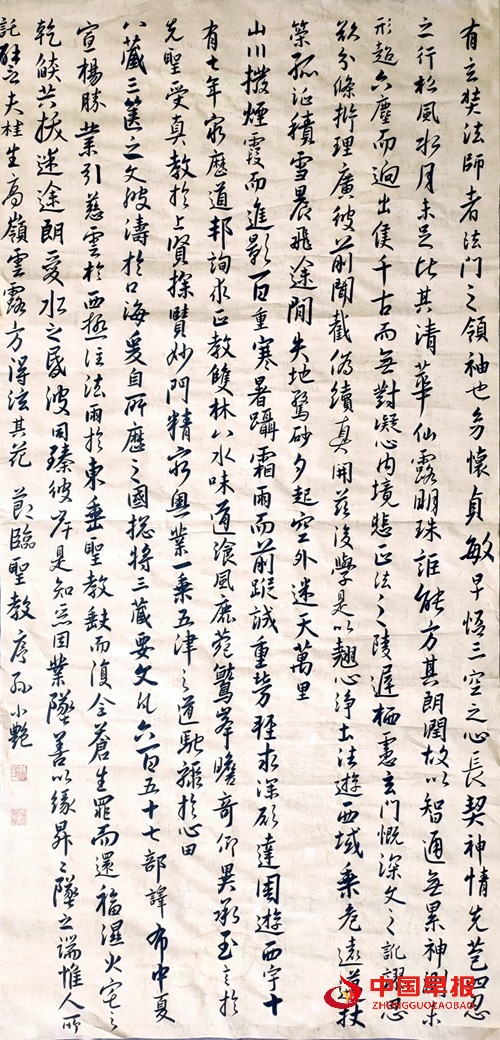 有玄奘法師者法門之領袖也幼懷貞敏早悟三空之心長契神情先苞四忍
之行松風水月未足比其清華仙露明珠詎能方其朗潤故以智通無累神測未
形超六塵而迥出隻千古而無對凝心內境悲正法之陵遲栖慮玄門慨深文之訛謬思
欲分條析理廣彼前聞截偽續真開茲後學是以翹心淨土法遊西域乘危遠邁杖
策孤征積雪晨飛途間失地驚砂夕起空外迷天萬里
山川撥煙霞而進影百重寒暑躡霜雨而前蹤誠重勞輕求深願達周遊西宇十
有七年窮歷道邦詢求正教雙林八水味道湌風鹿苑鷲峯瞻奇仰異承至言於
先聖受真教於上賢探賾妙門精窮奧業一乘五律之道馳驟於心田
八藏三篋之文波濤於口海爰自所歷之國總將三藏要文凡六百五十七部譯布中夏
宣揚勝業引慈雲於西極注法雨於東垂聖教缺而復全蒼生罪而還福濕火宅之
乾焰共拔迷途朗愛水之昏波同臻彼岸是知惡因業墜善以緣昇々墜之端惟人所
託譬夫桂生高嶺雲露方得泫其花 節臨聖教序孫小艷
中国早报
ZHENGGUOZAOBAO